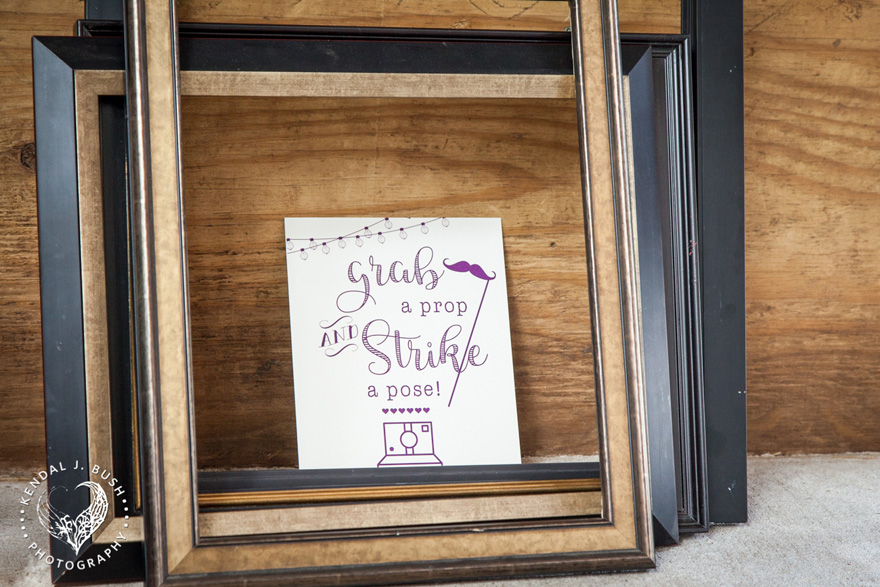 grab
a prop
AND Strike
a pose!
KENDAL J. BUSH
PHOTOGRAPHY